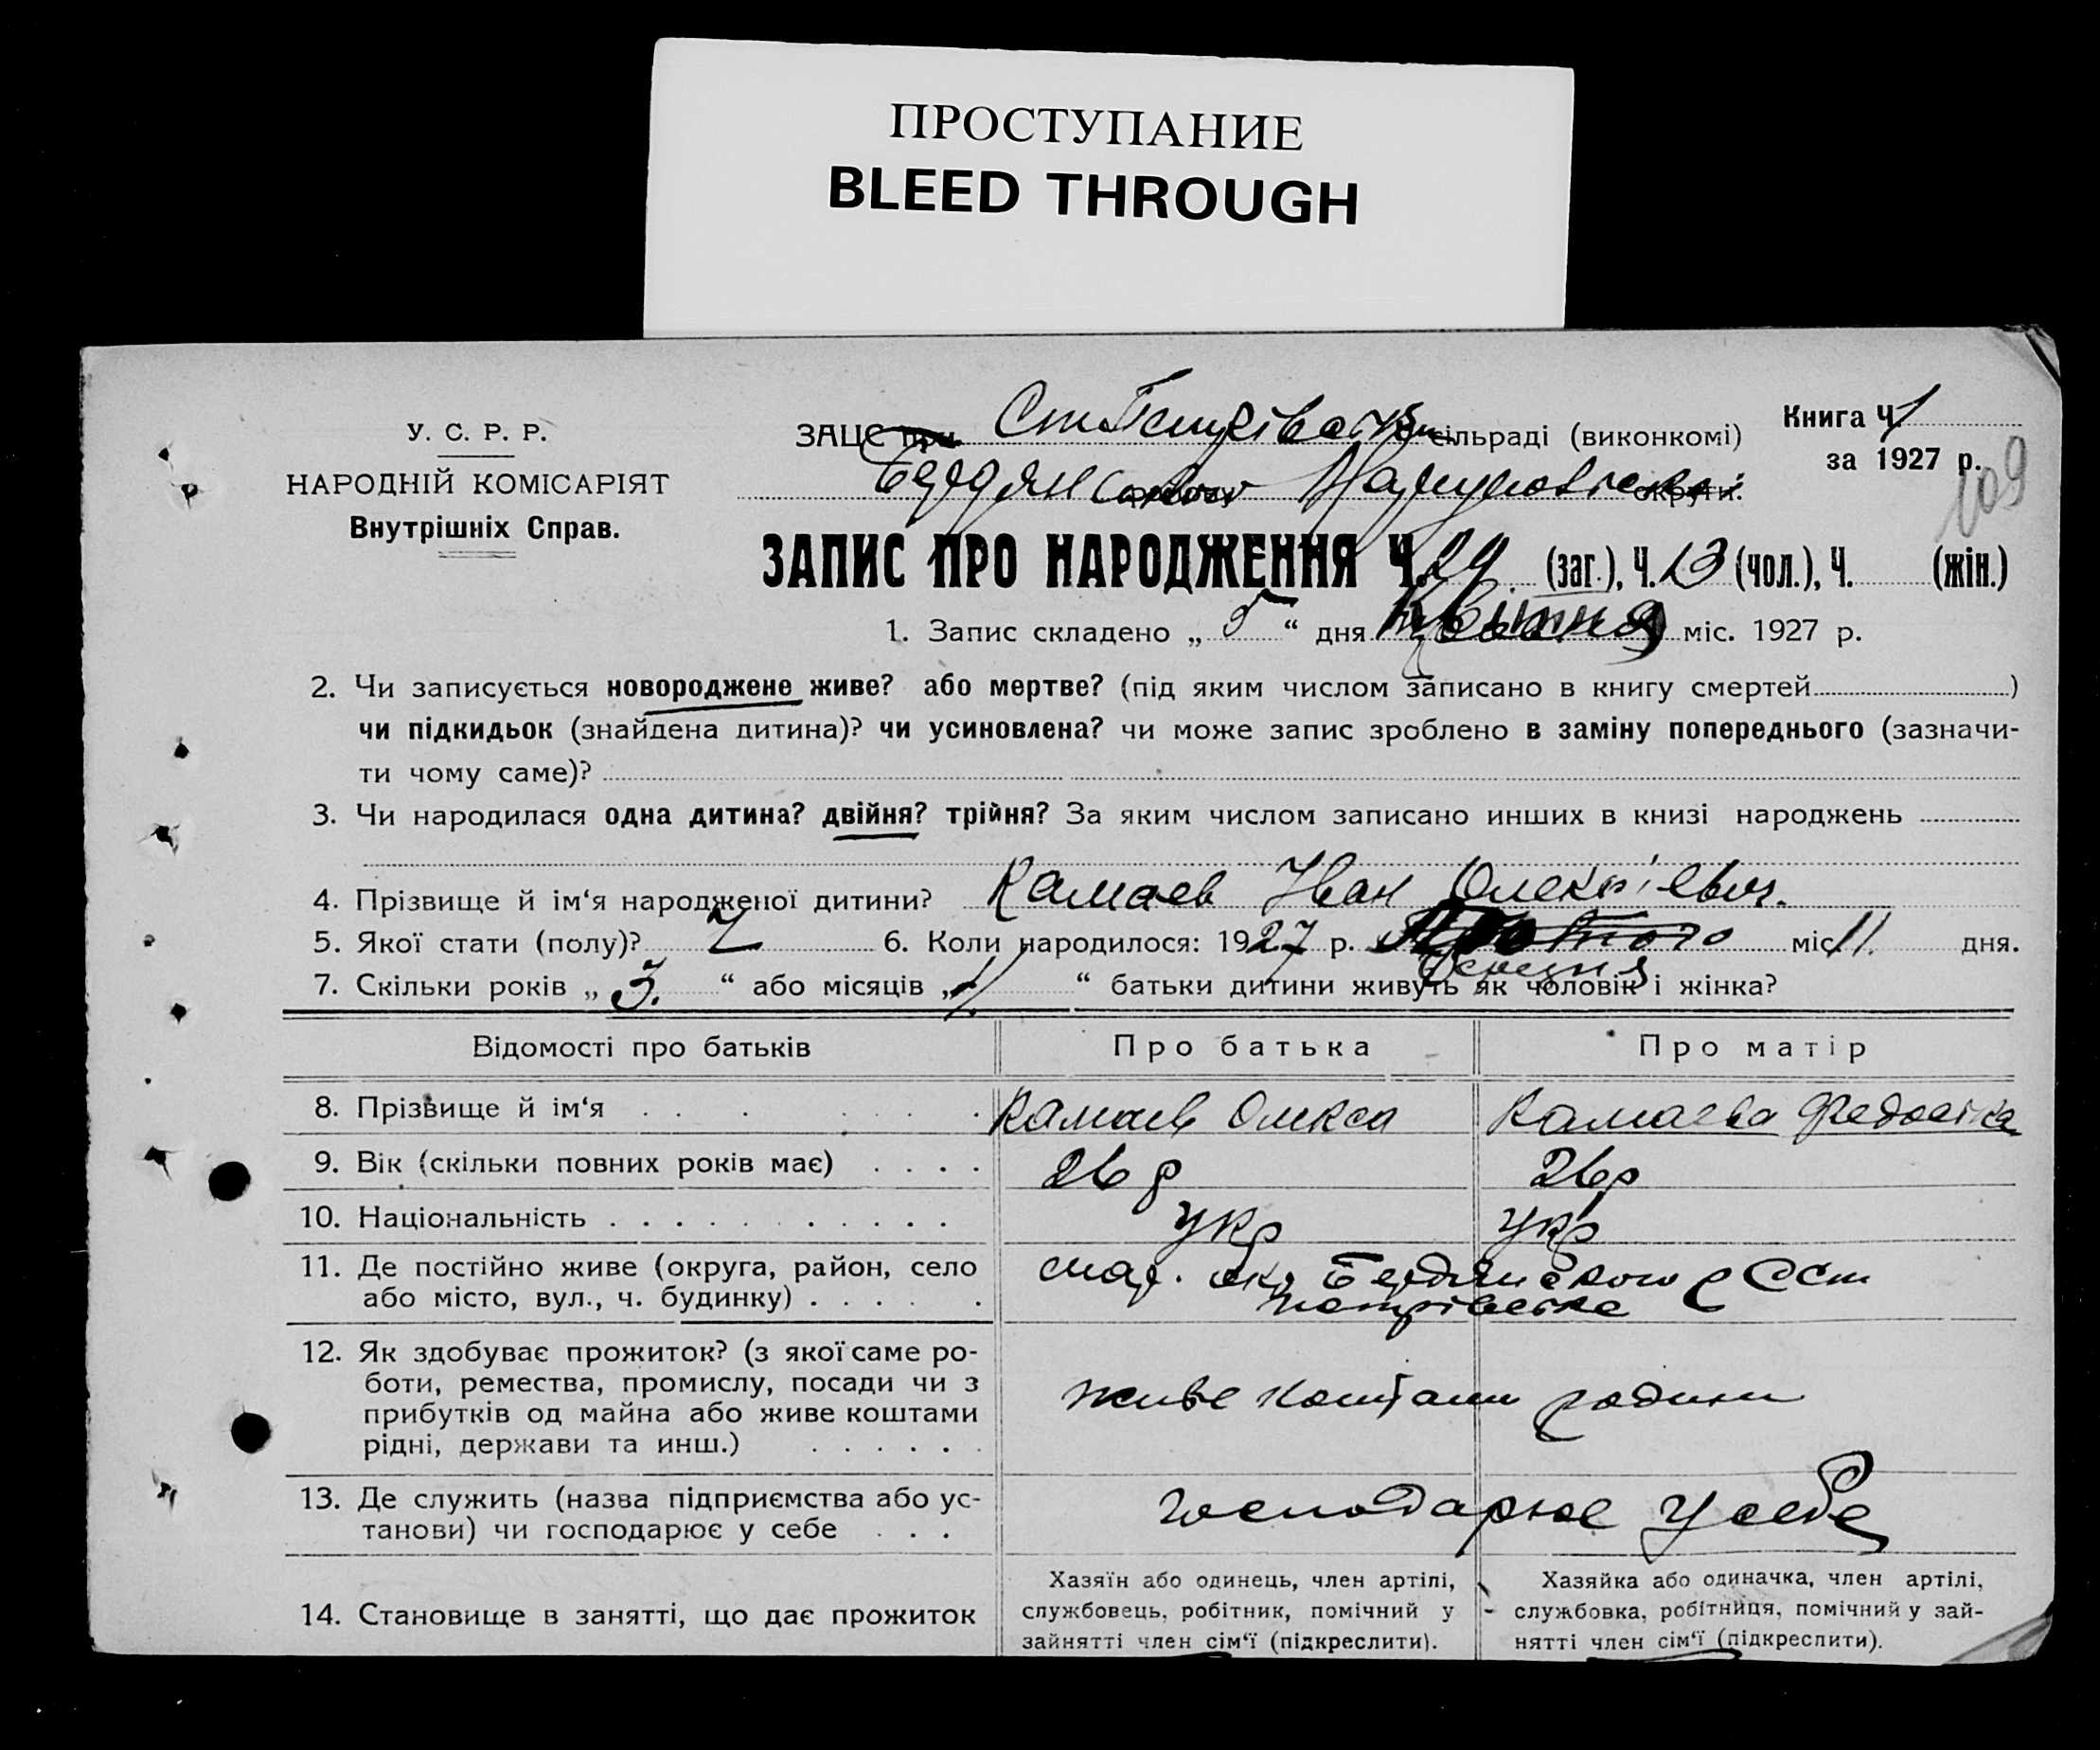 ПРОСТУПАНИЕ
BLEED THROUGH
У. С. Р. Р.
НАРОДНІЙ КОМІСАРІЯТ
Внутрішніх Справ.
ЗАЦС при сільраді (виконкомі)
округи.
Книга Ч. 1
за 1927 р.
109
ЗАПИС ПРО НАРОДЖЕННЯ Ч. 29 (заг.), Ч. 13 (чол.), Ч. (жін.)
1. Запис складено „ 5 “ дня Квітня міс. 1927 р.
2. Чи записується новороджене живе? або мертве? (під яким числом записано в книгу смертей )
чи підкидьок (знайдена дитина)? чи усиновлена? чи може запис зроблено в заміну попереднього (зазначи-
ти чому саме)?
3. Чи народилася одна дитина? двійня? трійня? За яким числом записано инших в книзі народжень
4. Прізвище й ім‘я народженої дитини? Камаев Иван Олексіевич.
5. Якої стати (полу)? Ч 6. Коли народилося: 1927 р. міс. 11. дня.
Березня
7. Скільки років „ 3. “ або місяців „ “ батьки дитини живуть як чоловік і жінка?
Відомості про батьків Про батька Про матір
8. Прізвище й ім‘я Камаев Олекса Камаева
9. Вік (скільки повних років має) 26 р 26 р
10. Національність укр укр
11. Де постійно живе (округа, район, село
або місто, вул., ч. будинку) мар. окр Бердянського р
12. Як здобуває прожиток? (з якої саме ро-
боти, ремества, промислу, посади чи з
прибутків од майна або живе коштами
рідні, держави та инш.) живе коштами родини
13. Де служить (назва підприємства або ус-
танови) чи господарює у себе господарює у себе
14. Становище в занятті, що дає прожиток
Хазяїн або одинець, член артілі,
службовець, робітник, помічний у
зайнятті член сім‘ї (підкреслити).
Хазяйка або одиначка, член артілі,
службовка, робітниця, помічний у зай-
нятті член сім‘ї (підкреслити).